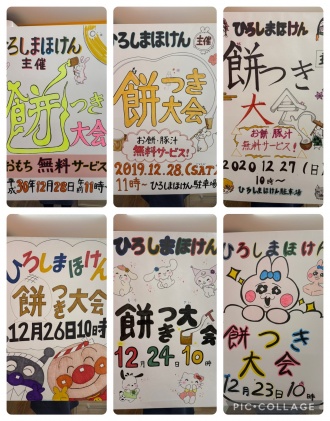 ひろしまほけん
主催
餅つき
大会
おもち 無料サービス
30年12月28日 午前11時
ひろしまほけん
主催
餅つき
大会
お餅・豚汁
無料サービス!
2019.12.28.(SAT)
11時〜ひろしまほけん駐車場
ひろしまほけん
主催
餅つき
大会
お餅 豚汁
無料サービス!
2020 12.27(日)
10時〜
ひろしまほけん駐車場
ひろしまほけん
餅つき大会
12月26日10時
ひろしまほけん
餅つき大会
12月24日10時
ひろしまほけん
餅つき
大会
12月23日10時
PIC·COLLAGE